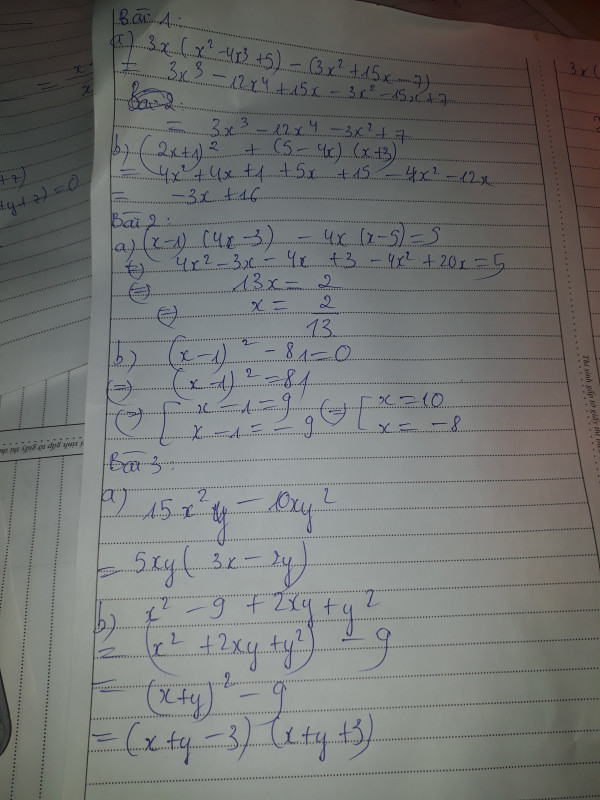 Bài 1:
a) 3x(x² - 4x³ + 5) - (3x² + 15x - 7)
= 3x³ - 12x⁴ + 15x - 3x² - 15x + 7
Bài 2:
= 3x³ - 12x⁴ - 3x² + 7
b) (2x+1)² + (5 - 4x)(x+3)
= 4x² + 4x + 1 + 5x + 15 - 4x² - 12x
= -3x + 16
Bài 2:
a) (x-1)(4x-3) - 4x(x-5) = 5
⇔ 4x² - 3x - 4x + 3 - 4x² + 20x = 5
⇔ 13x = 2
⇔ x = 2/13
b) (x-1)² - 81 = 0
⇔ (x-1)² = 81
⇔ [ x - 1 = 9 ⇔ [ x = 10
x - 1 = - 9 x = -8
Bài 3:
a) 15x²y - 10xy²
= 5xy(3x - 2y)
b) x² - 9 + 2xy + y²
= (x² + 2xy + y²) - 9
= (x+y)² - 9
= (x+y-3)(x+y+3)